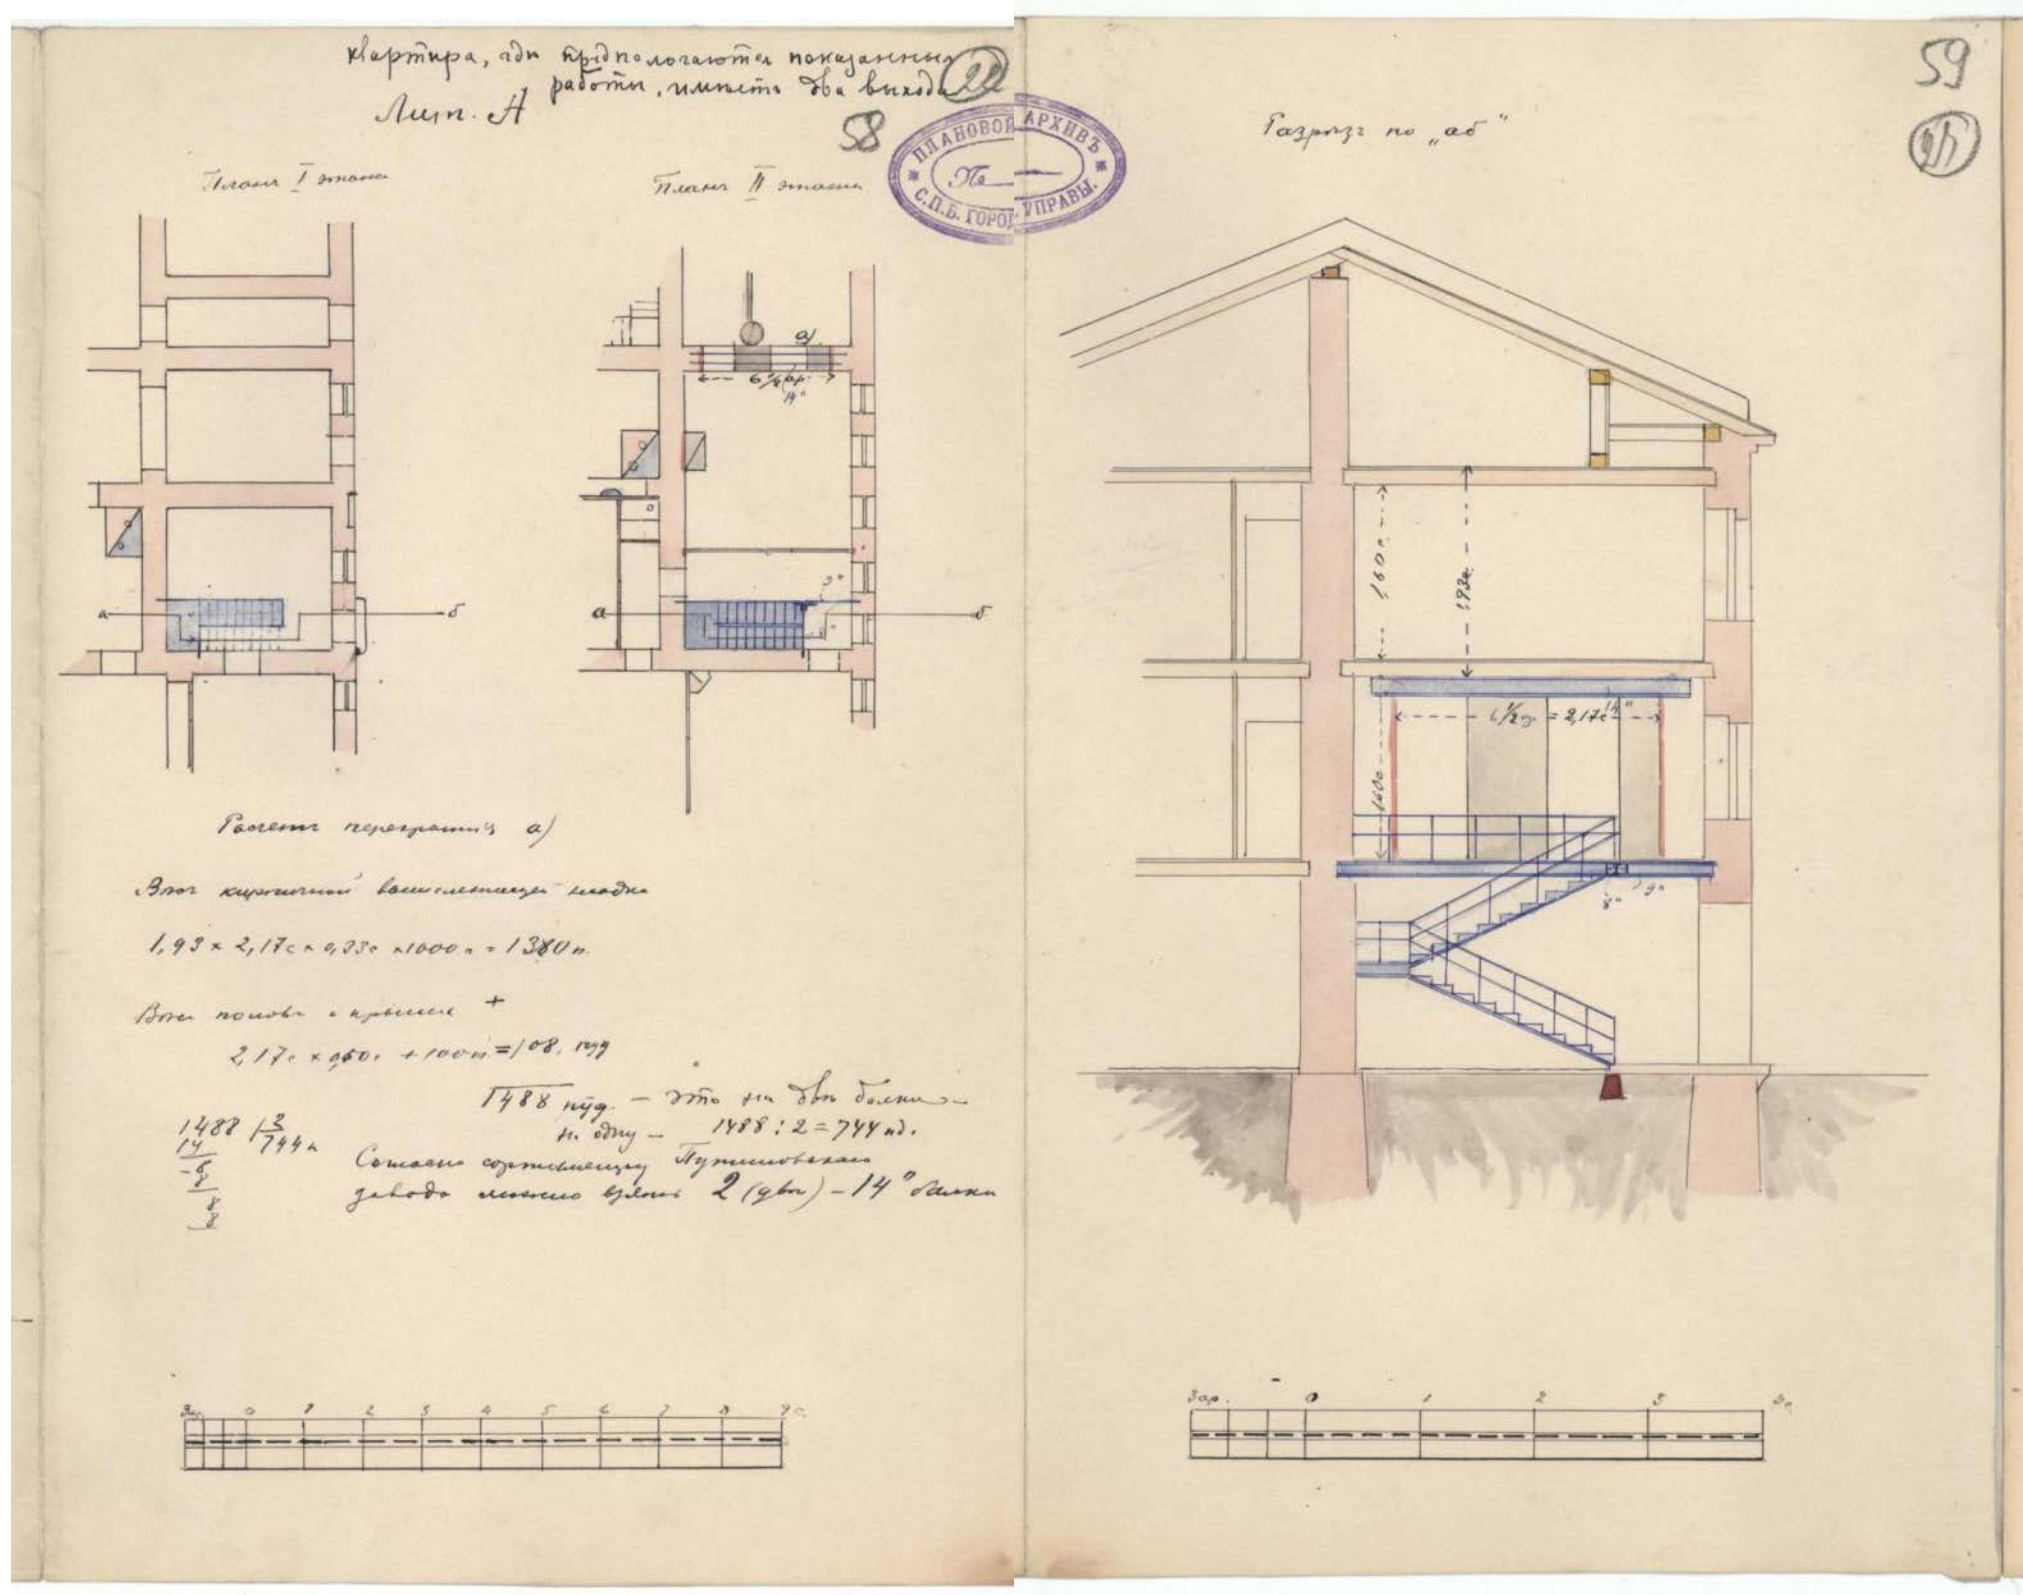 квартира, гдѣ предпологаются показанныя
работы, имѣетъ два выхода
22
Лит. А
58
ПЛАНОВОЙ АРХИВЪ
№ —
С.П.Б. ГОРОД. УПРАВЫ.
Планъ I этажа
Планъ II этажа
а)
6 1/2 ар.
14"
9"
а
б
а
б
Расчетъ перекрытія а)
Вѣсъ кирпичной кладки
1,93 × 2,17с × 0,33с × 1000 п = 1380 п.
Вѣсъ половъ и крыши +
2,17с × 0,50с + 100 п. = 108, пуд
1488 пуд. — это на двѣ балки —
на одну — 1488 : 2 = 744 пд.
1488 | 2
14 744 п
- 8
8
8
8
Согласно сортаменту Путиловскаго
завода можно взять 2 (двѣ) – 14" балки
3 ар. 0 1 2 3 4 5 6 7 8 9 с.
59
Разрѣзъ по „аб"
1,60 с.
1,93с.
6 1/2 ар = 2,17с
14"
1,60с
8"
9"
3 ар. 0 1 2 3 4с